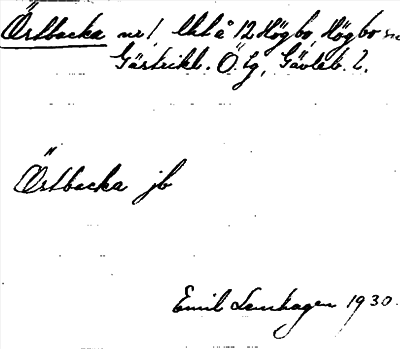 Östbacka nr 1 Utl å 12 Högbo, Högbo sn
Gästrikl. Ö. tg, Gävleb. l.
Östbacka jb
Emil Lenhagen 1930.